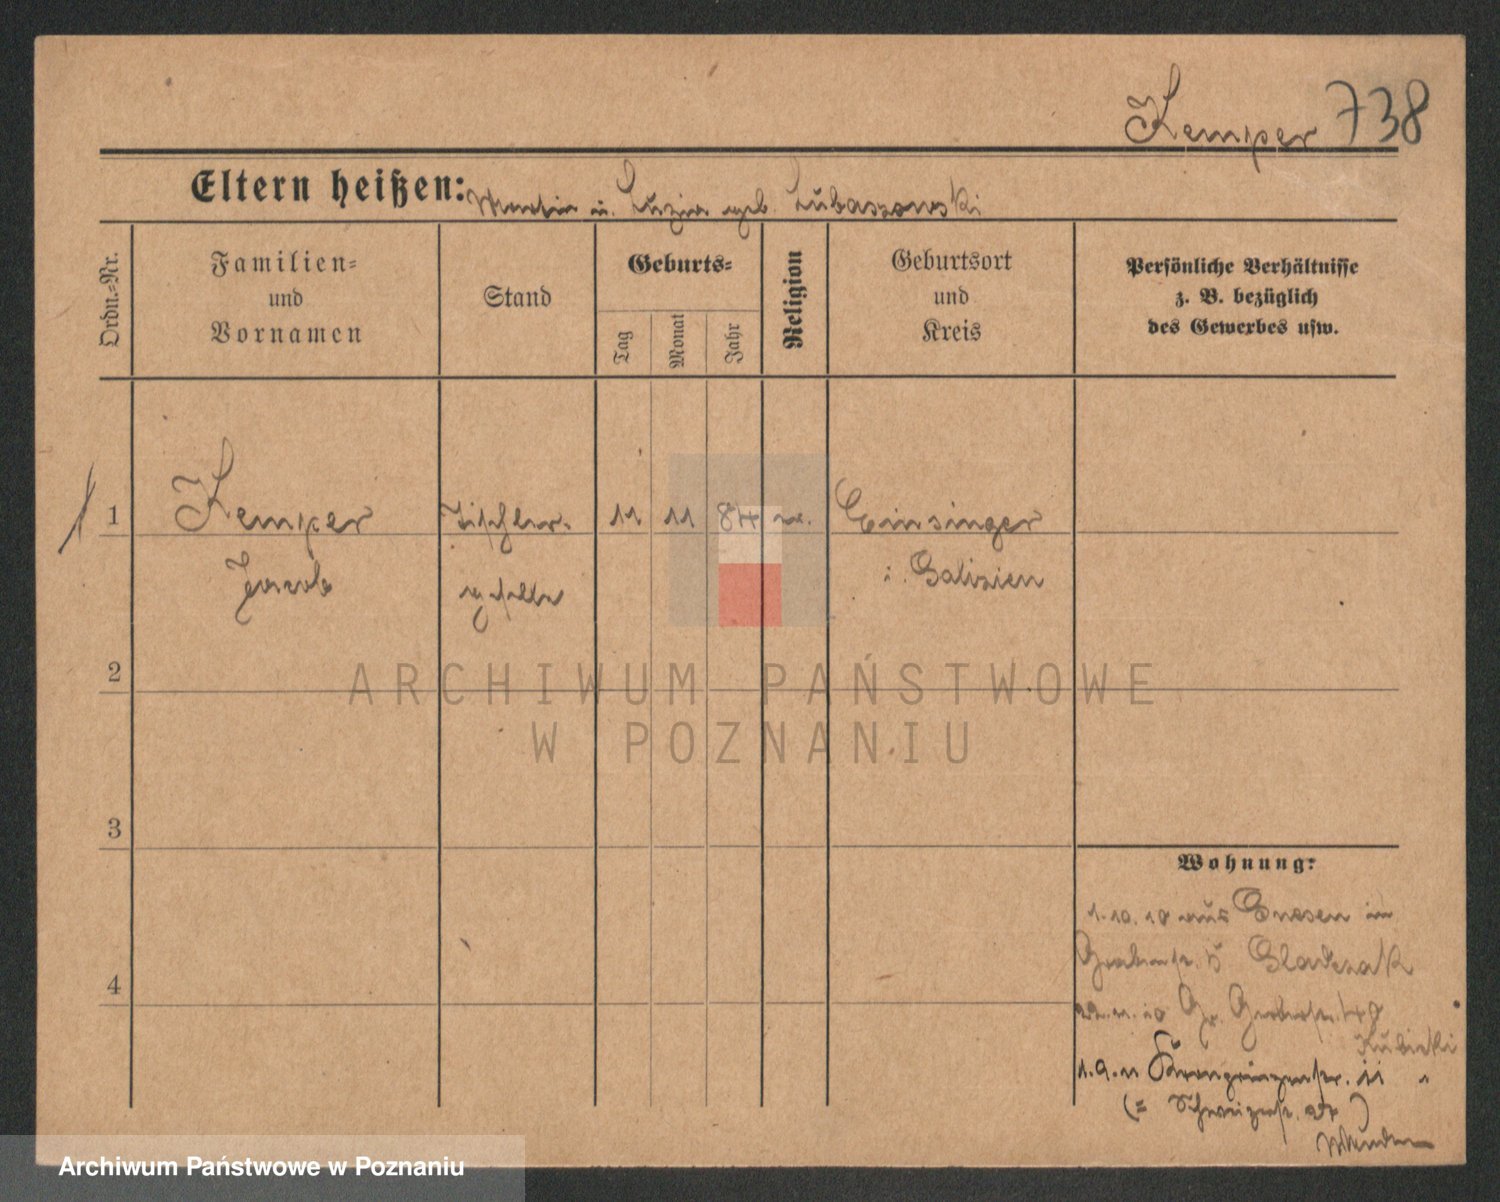 Kemper 738
Eltern heißen: Martin u. Luzia geb. Lubaszewski
Ordn.-Nr.
Familien-
und
Vornamen
Stand
Geburts-
Tag
Monat
Jahr
Religion
Geburtsort
und
Kreis
Persönliche Verhältnisse
z. B. bezüglich
des Gewerbes usw.
1 Kemper Tischler- 11 11 84 Einsinger
Jacob geselle i. Galizien
2
3
4
Wohnung:
1.10.10 aus Gnesen in
Grabenstr. 5
22.11.10 Gr. Gerberstr. 49
Kubicki
1.9.11 Kronprinzenstr.
ARCHIWUM PAŃSTWOWE
W POZNANIU
Archiwum Państwowe w Poznaniu